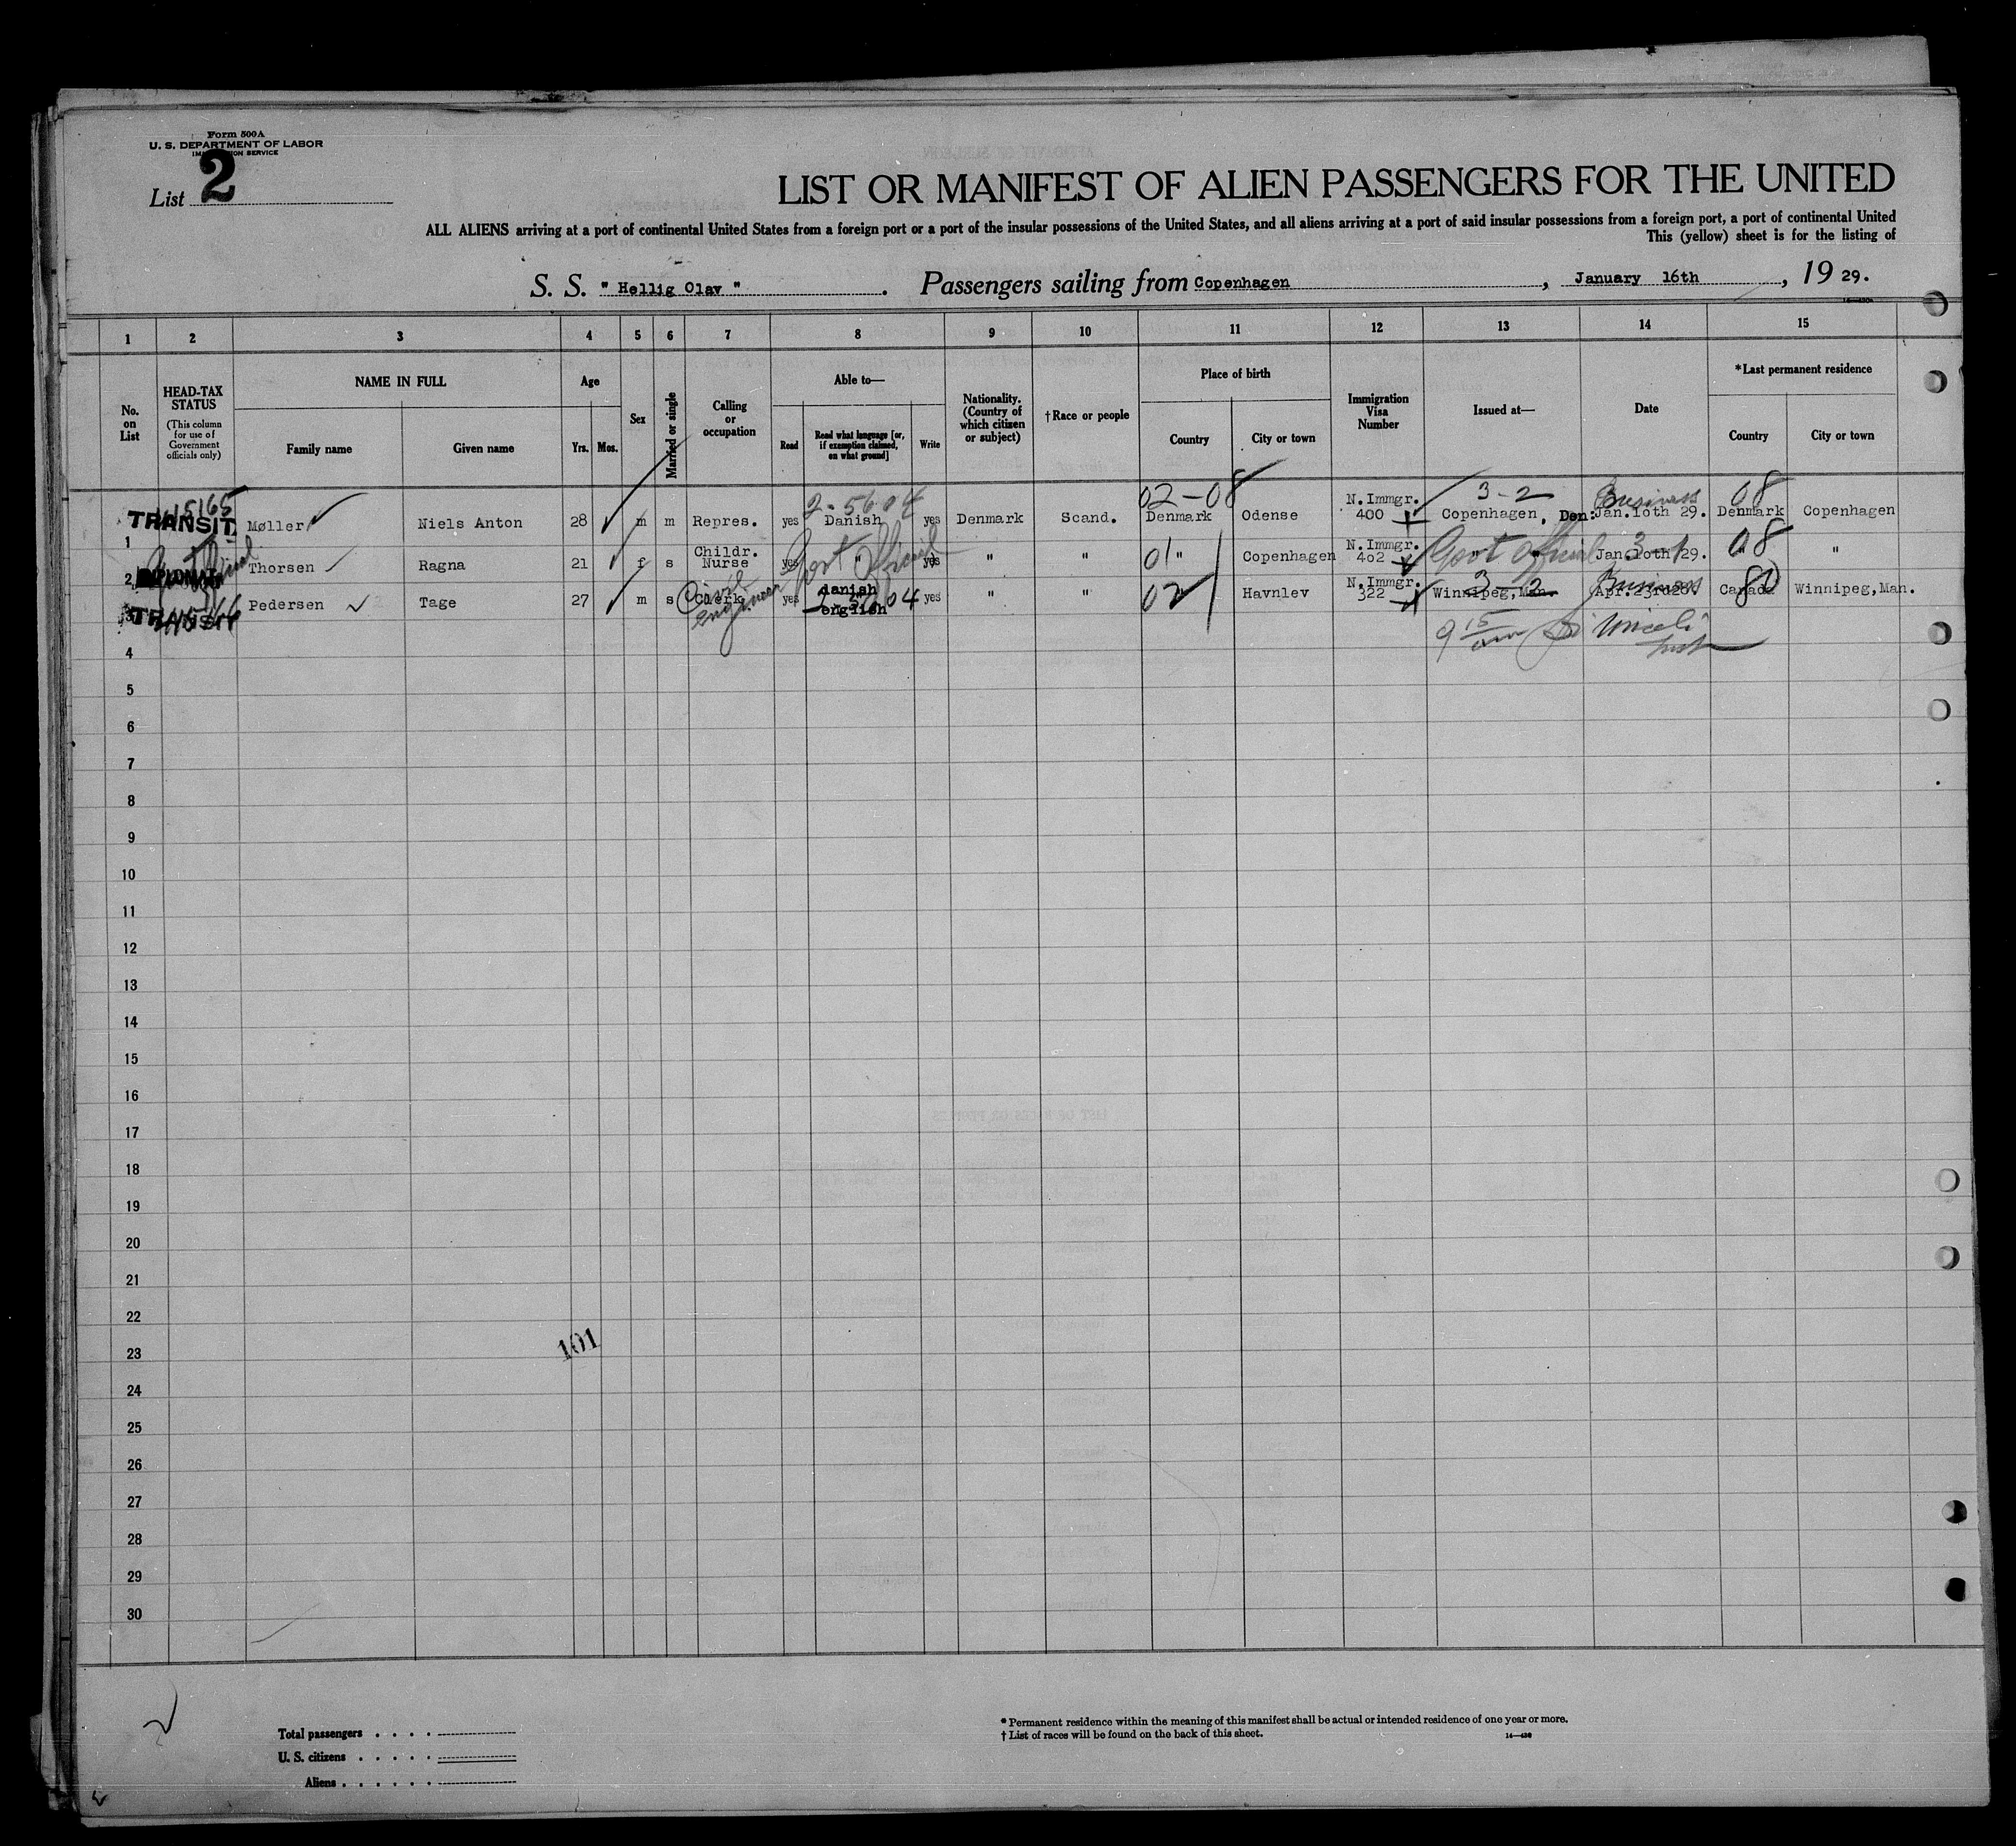 Form 500A
U. S. DEPARTMENT OF LABOR
List 2
LIST OR MANIFEST OF ALIEN PASSENGERS FOR THE UNITED
ALL ALIENS arriving at a port of continental United States from a foreign port or a port of the insular possessions of the United States, and all aliens arriving at a port of said insular possessions from a foreign port, a port of continental United
This (yellow) sheet is for the listing of
S. S. " Hellig Olav " . Passengers sailing from Copenhagen , January 16th , 19 29.
1 2 3 4 5 6 7 8 9 10 11 12 13 14 15
No. on List
HEAD-TAX STATUS
(This column for use of Government officials only)
NAME IN FULL
Family name Given name
Age
Yrs. Mos.
Sex
Married or single
Calling or occupation
Able to—
Read Read what language [or, if exemption claimed, on what ground] Write
Nationality. (Country of which citizen or subject)
†Race or people
Place of birth
Country City or town
Immigration Visa Number
Issued at—
Date
*Last permanent residence
Country City or town
2-5604 02-08 3-2 Business 08
1 TRANSIT Møller Niels Anton 28 m m Repres. yes Danish yes Denmark Scand. Denmark Odense N.Immgr. 400 Copenhagen, Den: Jan.10th 29. Denmark Copenhagen
2 Thorsen Ragna 21 f s Childr. Nurse yes " Govt Official yes " " 01 " Copenhagen N.Immgr. 402 Govt Official 3-1 Jan.10th 29. 08 " "
3 TRANSIT Pedersen Tage 27 m s Clerk Civil engineer yes danish english yes " " 02 Havnlev N.Immgr. 322 3-2 Winnipeg,Man. Business Apr.23rd28. Canada Winnipeg,Man.
9 15 am
4
5
6
7
8
9
10
11
12
13
14
15
16
17
18
19
20
21
22
23
101
24
25
26
27
28
29
30
Total passengers . . . .
U. S. citizens . . . . .
Aliens . . . . . .
* Permanent residence within the meaning of this manifest shall be actual or intended residence of one year or more.
† List of races will be found on the back of this sheet.